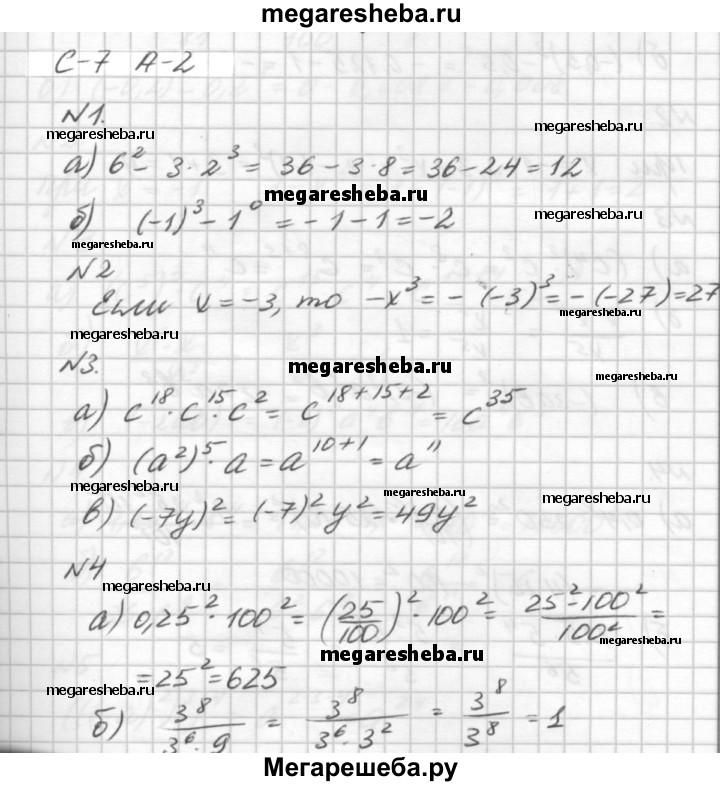 megaresheba.ru
С-7 А-2
№1.
megaresheba.ru
megaresheba.ru
а) 6² - 3·2³ = 36 - 3·8 = 36 - 24 = 12
megaresheba.ru
б) (-1)³ - 1⁰ = -1 - 1 = -2
megaresheba.ru
megaresheba.ru
№2
Если x = -3, то -x³ = -(-3)³ = -(-27) = 27
megaresheba.ru
megaresheba.ru
№3.
megaresheba.ru
megaresheba.ru
а) c¹⁸·c¹⁵·c² = c¹⁸⁺¹⁵⁺² = c³⁵
б) (a²)⁵·a = a¹⁰⁺¹ = a¹¹
megaresheba.ru
megaresheba.ru
megaresheba.ru
в) (-7y)² = (-7)²·y² = 49y²
№4
megaresheba.ru
а) 0,25²·100² = (25/100)²·100² = 25²·100²/100² =
megaresheba.ru
megaresheba.ru
= 25² = 625
megaresheba.ru
б) 3⁸/(3⁶·9) = 3⁸/(3⁶·3²) = 3⁸/3⁸ = 1
Мегарешеба.ру